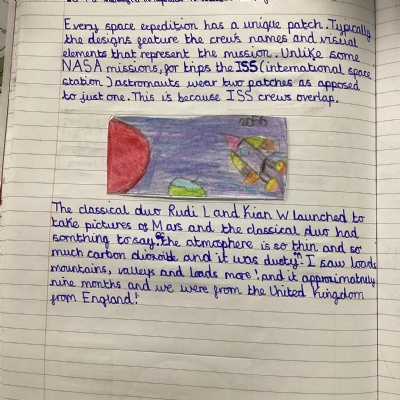 Every space expedition has a unique patch. Typically
the designs feature the crew's names and visual
elements that represent the mission. Unlike some
NASA missions, for trips the ISS (international space
station) astronauts wear two patches as apposed
to just one. This is because ISS crews overlap.
2056
The classical duo Rudi L and Kian W launched to
take pictures of Mars and the classical duo had
somthing to say "the atmosphere is so thin and so
much carbon dioxide and it was dusty". I saw loads
mountains, valleys and loads more! and it approximately
nine months and we were from the United Kingdom
from England!